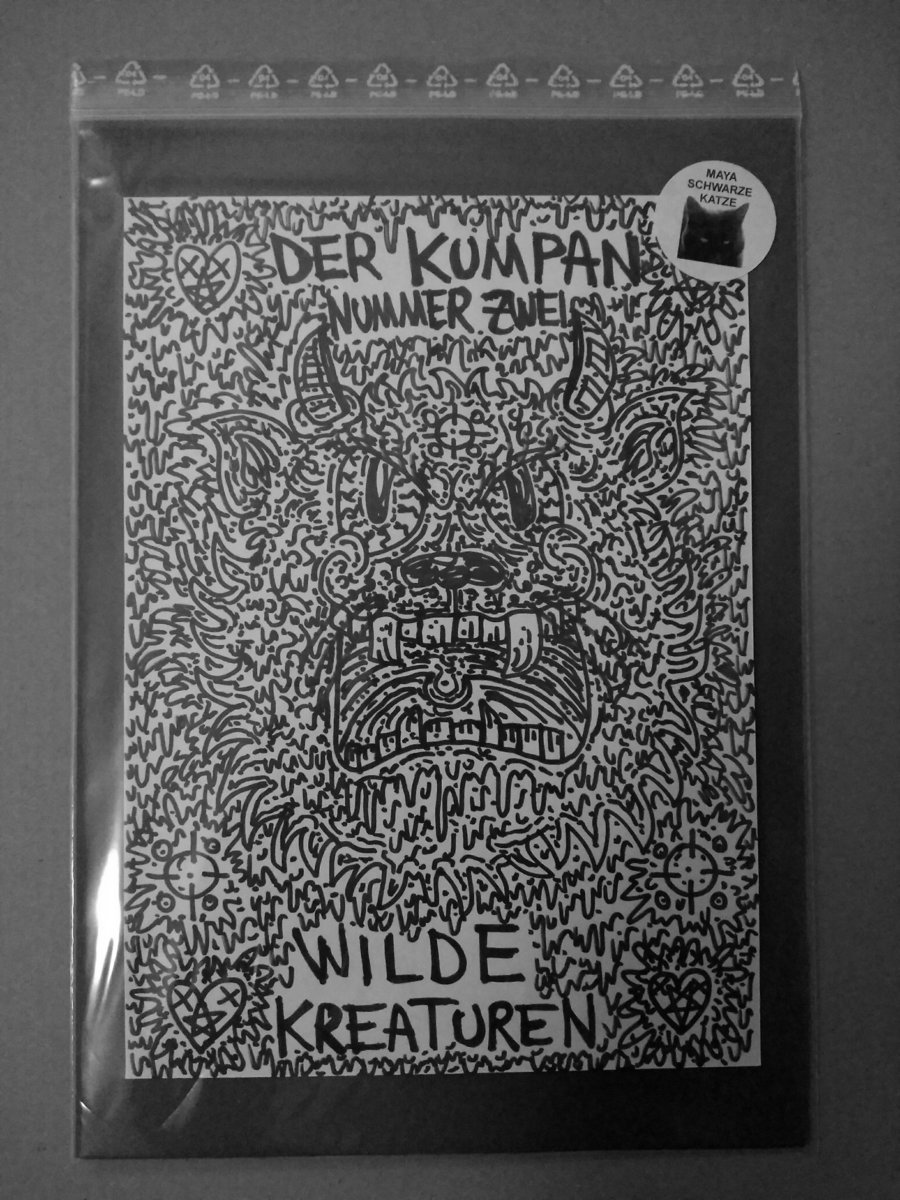 MAYA
SCHWARZE
KATZE
DER KUMPAN
NUMMER ZWEI
WILDE
KREATUREN